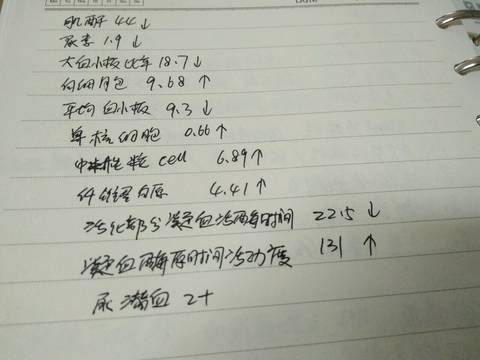 肌酐 44↓
尿素 1.9↓
大血小板比率 18.7↓
白细胞 9.68↑
平均血小板 9.3↓
单核细胞 0.66↑
中性粒cell 6.89↑
纤维蛋白原 4.41↑
活化部分凝血活酶时间 22.5↓
凝血酶原时间活动度 131↑
尿潜血 2+